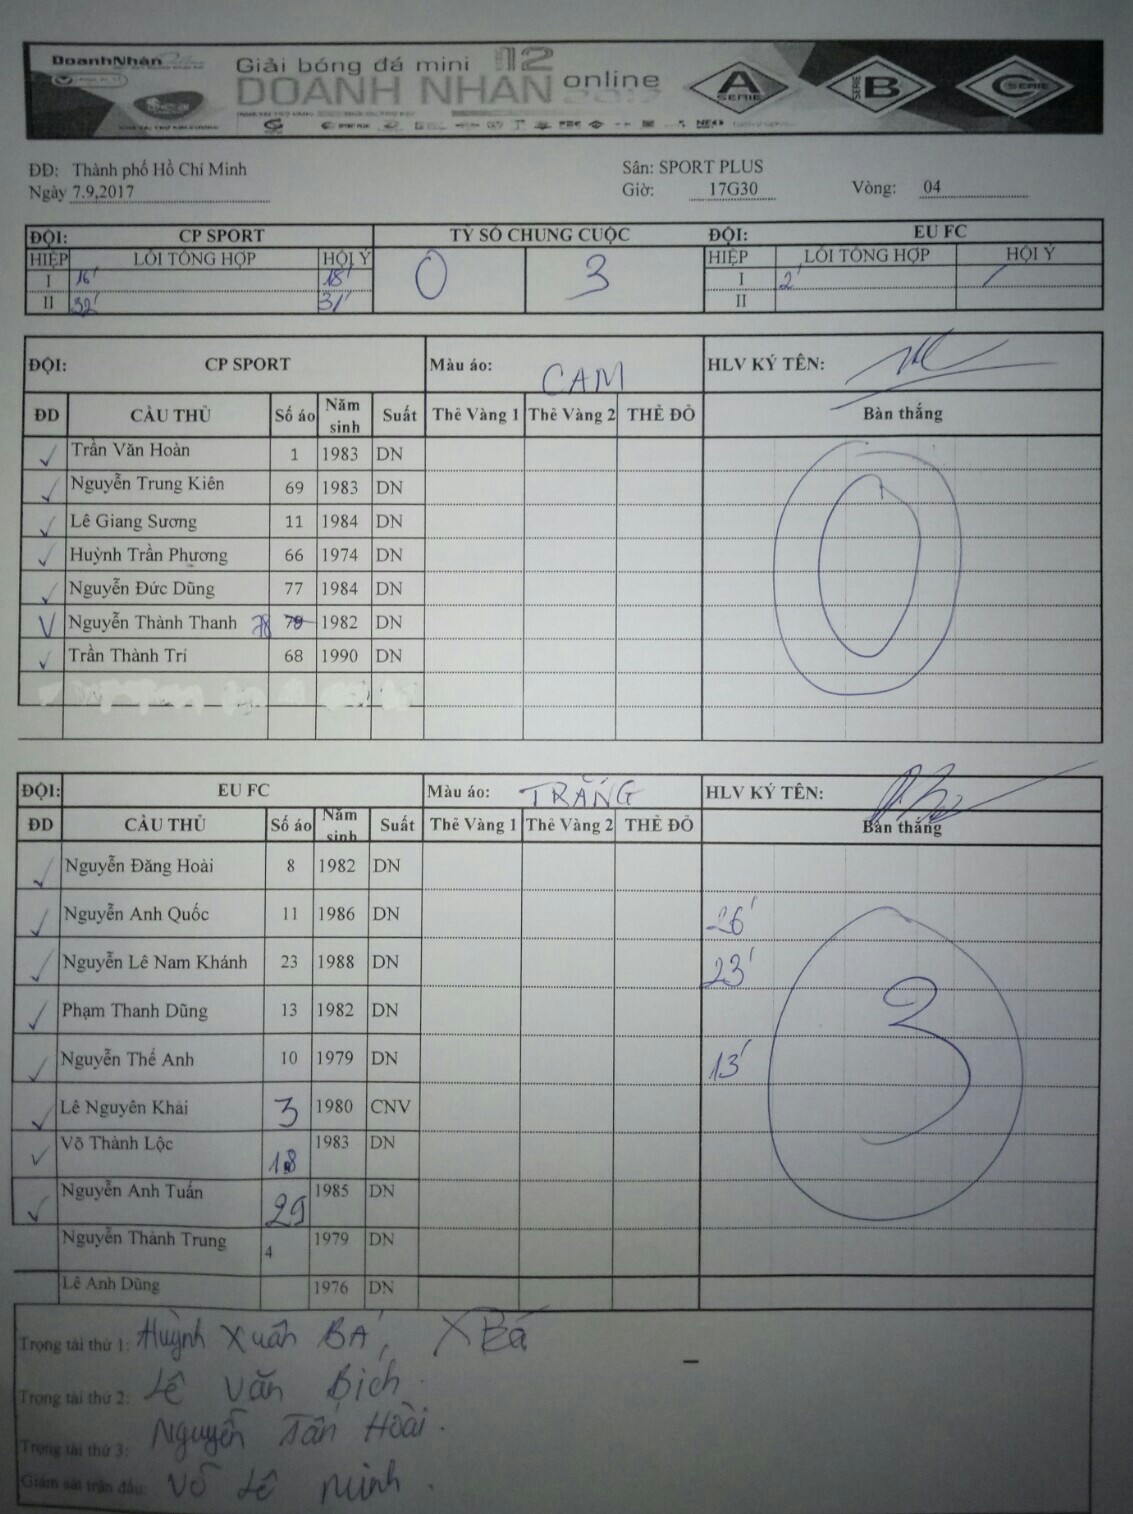 DoanhNhân
Giải bóng đá mini 12
DOANH NHÂN online 2017
A SERIE
SERIE B
C SERIE
ĐD: Thành phố Hồ Chí Minh Sân: SPORT PLUS
Ngày 7.9,2017 Giờ: 17G30 Vòng: 04
ĐỘI: CP SPORT TỶ SỐ CHUNG CUỘC ĐỘI: EU FC
HIỆP LỖI TỔNG HỢP HỘI Ý 0 3 HIỆP LỖI TỔNG HỢP HỘI Ý
I 16' 18' I 2' /
II 32' 31' II
ĐỘI: CP SPORT Màu áo: CAM HLV KÝ TÊN:
ĐD CẦU THỦ Số áo Năm sinh Suất Thẻ Vàng 1 Thẻ Vàng 2 THẺ ĐỎ Bàn thắng
Trần Văn Hoàn 1 1983 DN
Nguyễn Trung Kiên 69 1983 DN
Lê Giang Sương 11 1984 DN
Huỳnh Trần Phương 66 1974 DN
Nguyễn Đức Dũng 77 1984 DN
Nguyễn Thành Thanh 78 1982 DN
Trần Thành Trí 68 1990 DN
0
ĐỘI: EU FC Màu áo: TRẮNG HLV KÝ TÊN:
ĐD CẦU THỦ Số áo Năm sinh Suất Thẻ Vàng 1 Thẻ Vàng 2 THẺ ĐỎ Bàn thắng
Nguyễn Đăng Hoài 8 1982 DN
Nguyễn Anh Quốc 11 1986 DN 26'
Nguyễn Lê Nam Khánh 23 1988 DN 23'
Phạm Thanh Dũng 13 1982 DN
Nguyễn Thế Anh 10 1979 DN 13'
3
Lê Nguyên Khải 3 1980 CNV
Võ Thành Lộc 18 1983 DN
Nguyễn Anh Tuấn 29 1985 DN
Nguyễn Thành Trung 4 1979 DN
Lê Anh Dũng 1976 DN
Trọng tài thứ 1: Huỳnh Xuân BÁ, XBá
Trọng tài thứ 2: Lê Văn Bích.
Trọng tài thứ 3: Nguyễn Tấn Hoài.
Giám sát trận đấu: Võ Lê Minh.